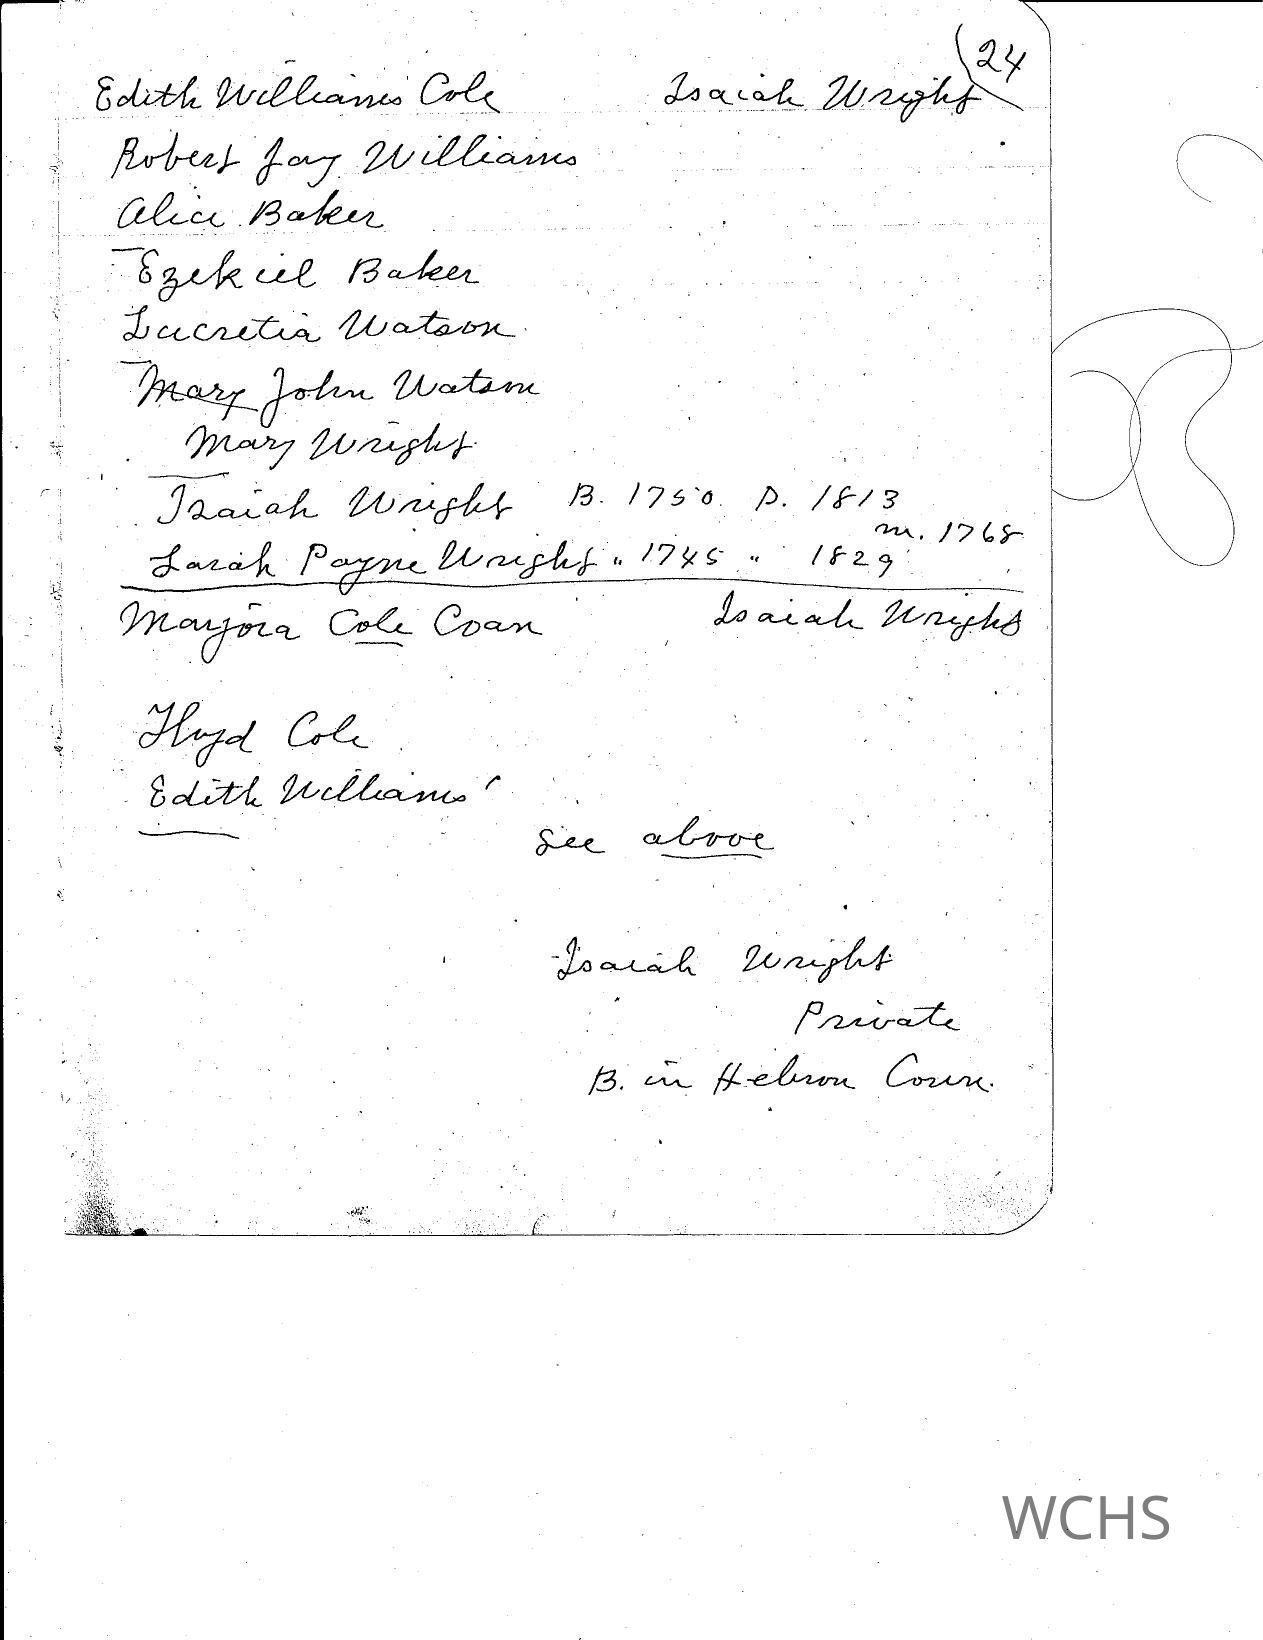 24
Edith Williams Cole Isaiah Wright
Robert Jay Williams
Alice Baker
Ezekiel Baker
Lucretia Watson
Mary John Watson
Mary Wright
Isaiah Wright B. 1750 D. 1813
m. 1768
Sarah Payne Wright " 1745 " 1829
Marjora Cole Coan Isaiah Wright
Floyd Cole
Edith Williams
See above
Isaiah Wright
Private
B. in Hebron Conn.
WCHS